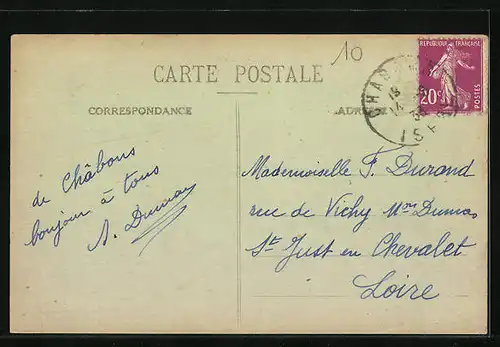 10
CARTE POSTALE
CORRESPONDANCE
REPUBLIQUE FRANÇAISE
20c
POSTES
de Châbons
bonjour à tous
A. Dumas
Mademoiselle F. Durand
rue de Vichy Mon Dumas
St Just en Chevalet
Loire